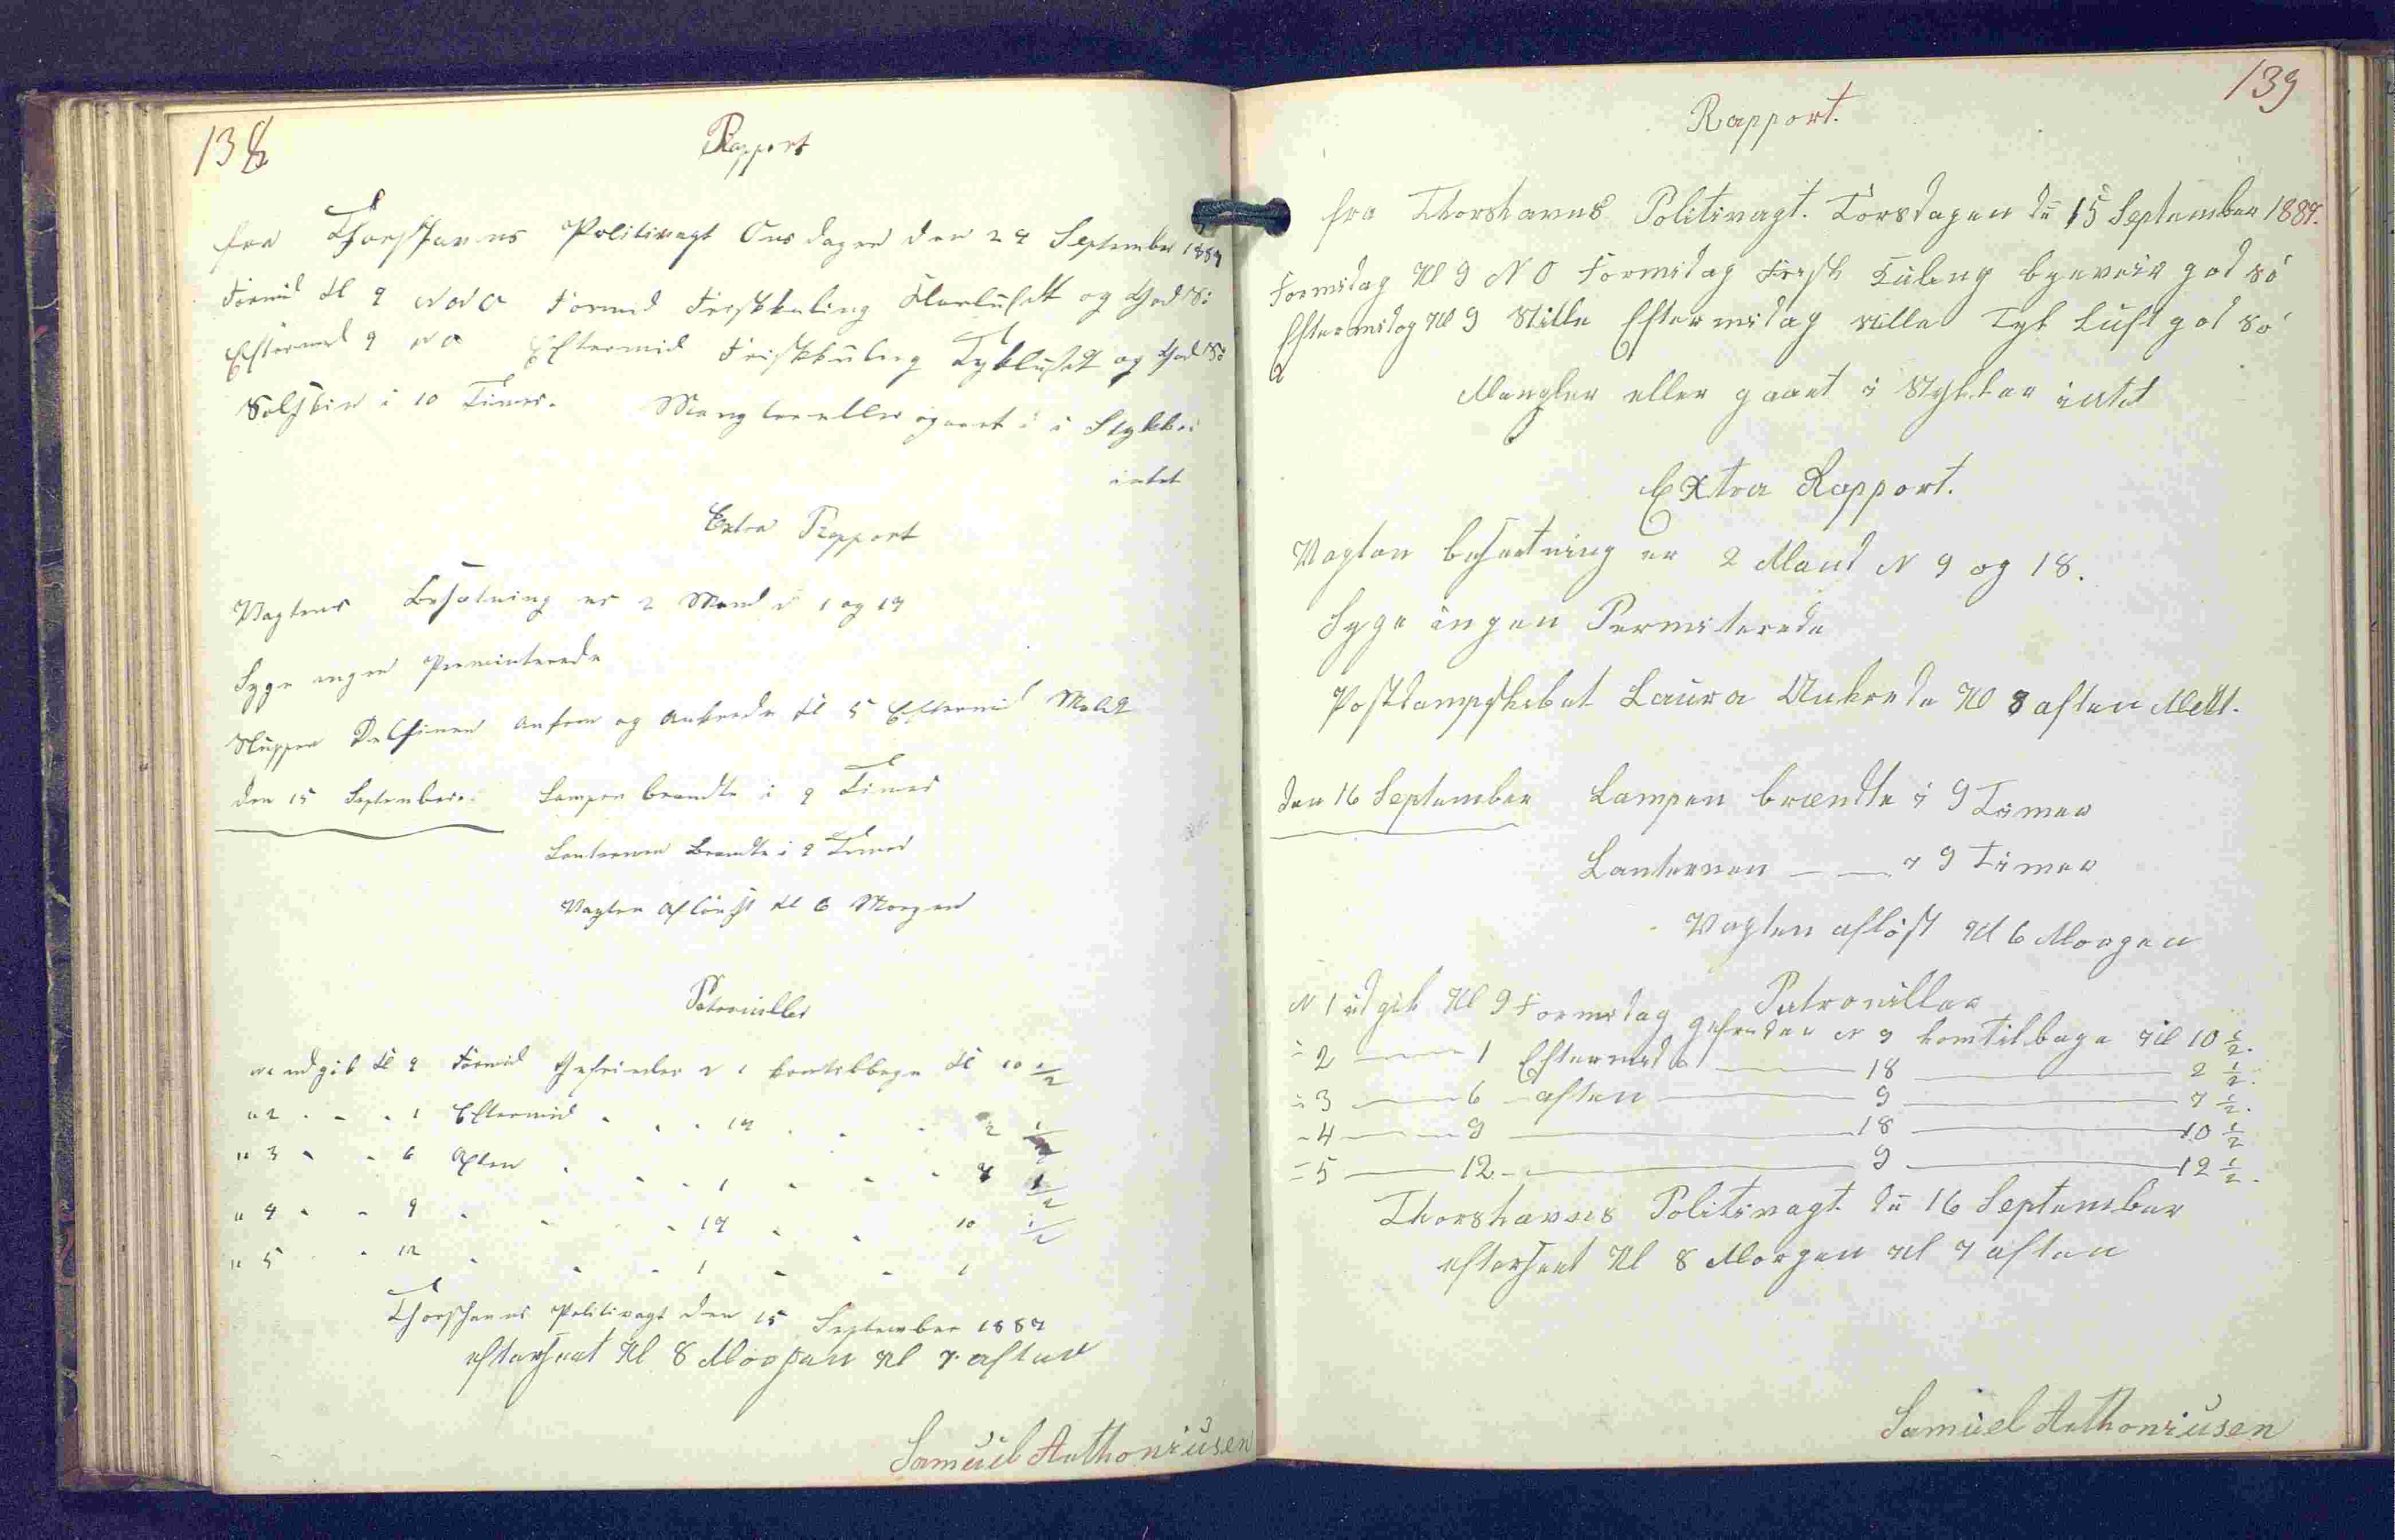 138
Rapport
fra Thorshavns Politivagt Onsdagen den 14 September 1887
Formid Kl 9 NNO Formid Friskkuling Klarluft og God Sö
Eftermid 9 NO Eftermid Friskkuling Tykluft og God Sö
Solskin i 10 Timer. Mangler eller gaaet i Stykker
intet
Extra Rapport
Vagtens Besætning er 2 Mand N 1 og 17
Syge ingen Permiterede
Sluppen Delfinen ankom og Ankrede Kl 5 Eftermid Meldt
den 15 September. Lampen brændte i 9 Timer
Lanternen Brændte i 9 Timer
Vagten Aflöst Kl 6 Morgen
Patrouiller
N 1 udgik Kl 9 Formid Gefreider N 1 komtilbage Kl 10 1/2
" 2 - - - 1 Eftermid - - - 17 - - - 2 1/2
" 3 - - 6 Aften - - - 1 - - - 7 1/2
" 4 - - 9 - - - 17 - - 10 1/2
" 5 - - 12 - - - 1 - - 1
Thorshavns Politivagt den 15 September 1887
efterseet Kl 8 Morgen Kl 7 aften
Samüel Anthoniüsen
139
Rapport.
fra Thorshavns Politivagt. Torsdagen dn 15 September 1887.
Formidag Kl 9 NO Formidag Frisk Kuling byeveir god sö
Eftermidag Kl 9 Stille Eftermidag stille Tyk Luft god sö
Mangler eller gaaet i Stykker intet
Extra Rapport.
Vagten besætning er 2 Mand N 9 og 18.
Syge ingen Permiterede
Postdampskibet Laura Ankrede Kl 8 aften Meldt.
den 16 September Lampen brændte i 9 Timer
Lanternen — — i 9 Timer
Vagten aflöst Kl 6 Morgen
Patrouiller
N 1 udgik Kl 9 Formidag gefreider N 9 komtilbage Kl 10 1/2.
- 2 — 1 Eftermidag — 18 — 2 1/2.
- 3 — 6 aften — 9 — 7 1/2.
- 4 — 9 — 18 — 10 1/2
- 5 — 12 — 9 — 12 1/2.
Thorshavns Politivagt dn 16 September
efterseet Kl 8 Morgen Kl 7 aften
Samüel Anthoniüsen